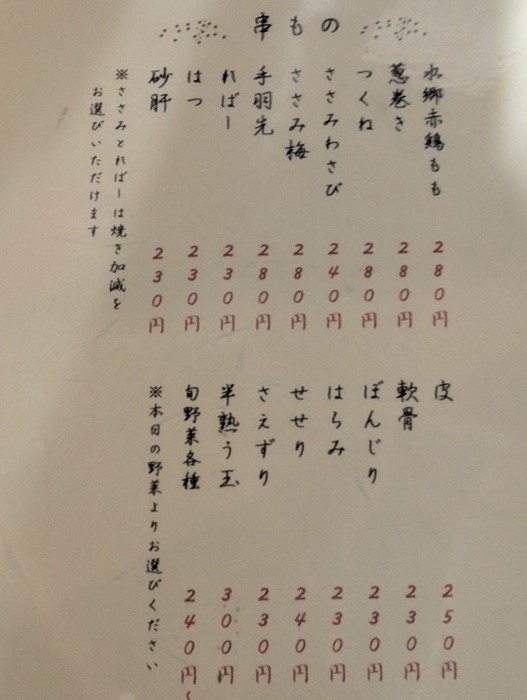 串もの
水郷赤鶏もも 280円
葱巻き 280円
つくね 280円
ささみわさび 240円
ささみ梅 280円
手羽先 280円
ればー 230円
はつ 230円
砂肝 230円
※ささみとればーは焼き加減を
お選びいただけます
皮 250円
軟骨 230円
ぼんじり 230円
はらみ 230円
せせり 240円
さえずり 230円
半熟う玉 300円
旬野菜各種 240円〜
※本日の野菜よりお選びください